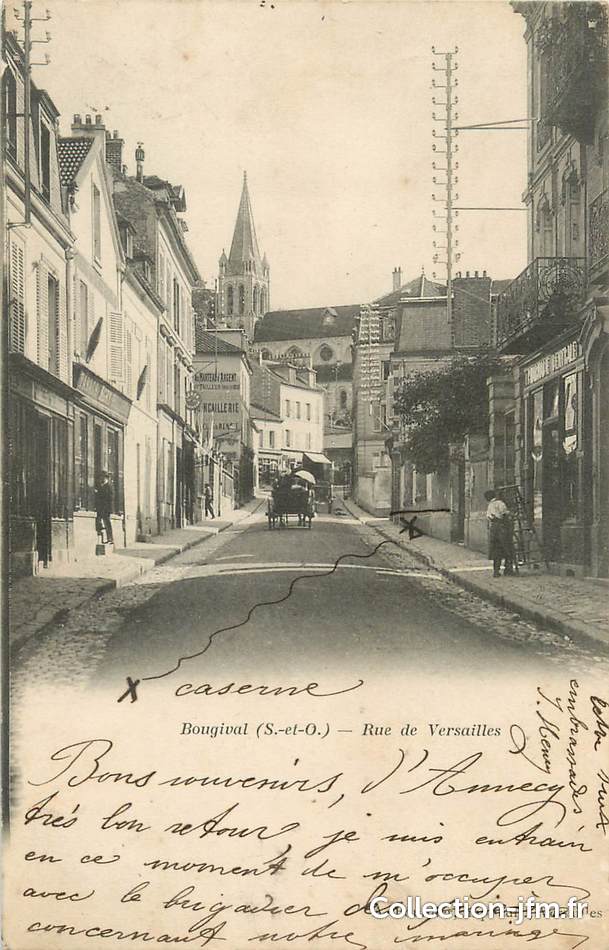 MARTEAU D'ARGENT
QUINCAILLERIE
X caserne
Bougival (S.-et-O.) — Rue de Versailles
Bons souvenirs, d'Annecy
très bon retour, je suis entrain
en ce moment de m'occuper
avec le brigadier de
concernant notre mariage
embrassades
Collection-jfm.fr